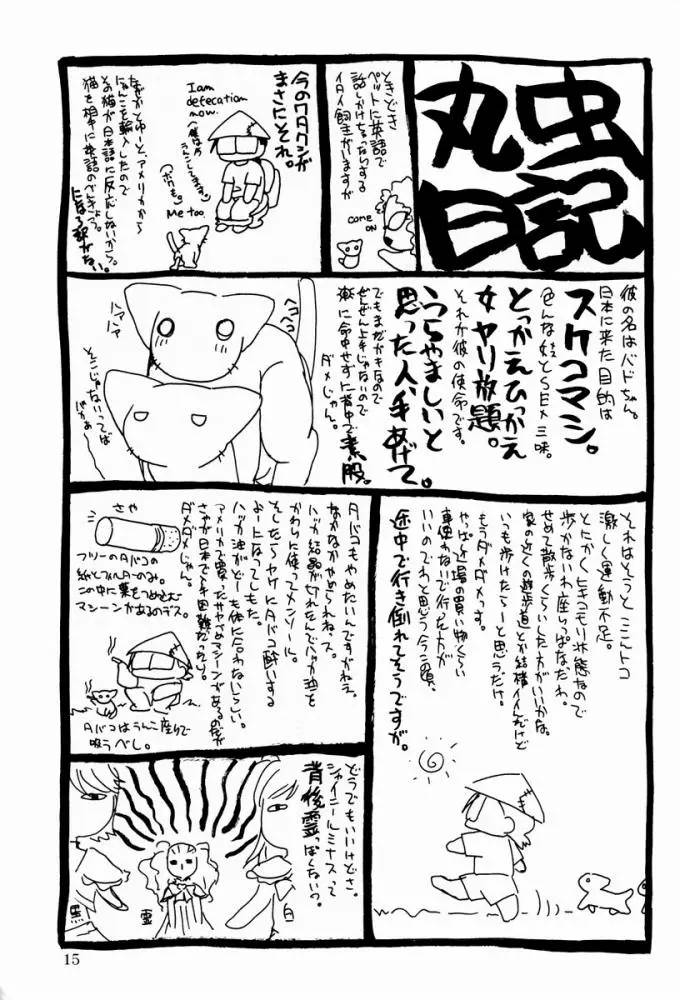 丸虫
日記
ときどき
ペットに英語で
話しかけちゃったりする
イタイ飼主がいますが
came
on
今のワタクシが
まさにそれ。
I am
defecation
now.
Me too.
なぜかとゆーとアメリカから
にゃんこを輸入したので
その猫が日本語に反応しないから。
猫を相手に英語のべんきょう。
になる訳がない。
彼の名はバドちゃん。
日本に来た目的は
スケコマシ。
色んな娘とSEX三昧。
とっかえひっかえ
女ヤリ放題。
それが彼の使命です。
うらやましいと
思った人、手あげて。
でもまだガキなので
ぜんぜん上手じゃないので
楽に命中せずに背中で素股。
ダメじゃん。
ヘコヘコ
ハァハァ
そこじゃないってば
それはそうとここんトコ
激しく運動不足。
とにかくヒキコモリ状態なので
歩かないわ座いっぱなだわ。
せめて散歩くらいした方がいいかな。
家の近くの遊歩道とか結構イイんだけど
いつも歩けたらーと思うだけ。
もうダメダメっす。
やっぱ近場の買い物くらい
車使わないで行った方が
いいのでわと思う今この頃。
途中で行き倒れてそうですが。
タバコもやめたいんですがねえ。
なかなかやめられねス。
ハッカ結晶が切れたんでハッカ油を
かわりに使ってメンソール。
そしたらヤケにタバコ酔いする
よーになってしもた。
ハッカ油がどーも体に合わないらしい。
アメリカで買ったサヤづめマシーンがあるのだが
さやが日本で入手困難だったり。
ダメダメじゃん。
さや
フツーのタバコの
紙とフィルターのみ。
この中に葉をつめ込む
マシーンがあるのデス。
タバコはうんこ座りで
吸うべし。
どうでもいいけどさ。
シャイニールミナスって
背後霊っぽくないっ?
黒
霊
白
15